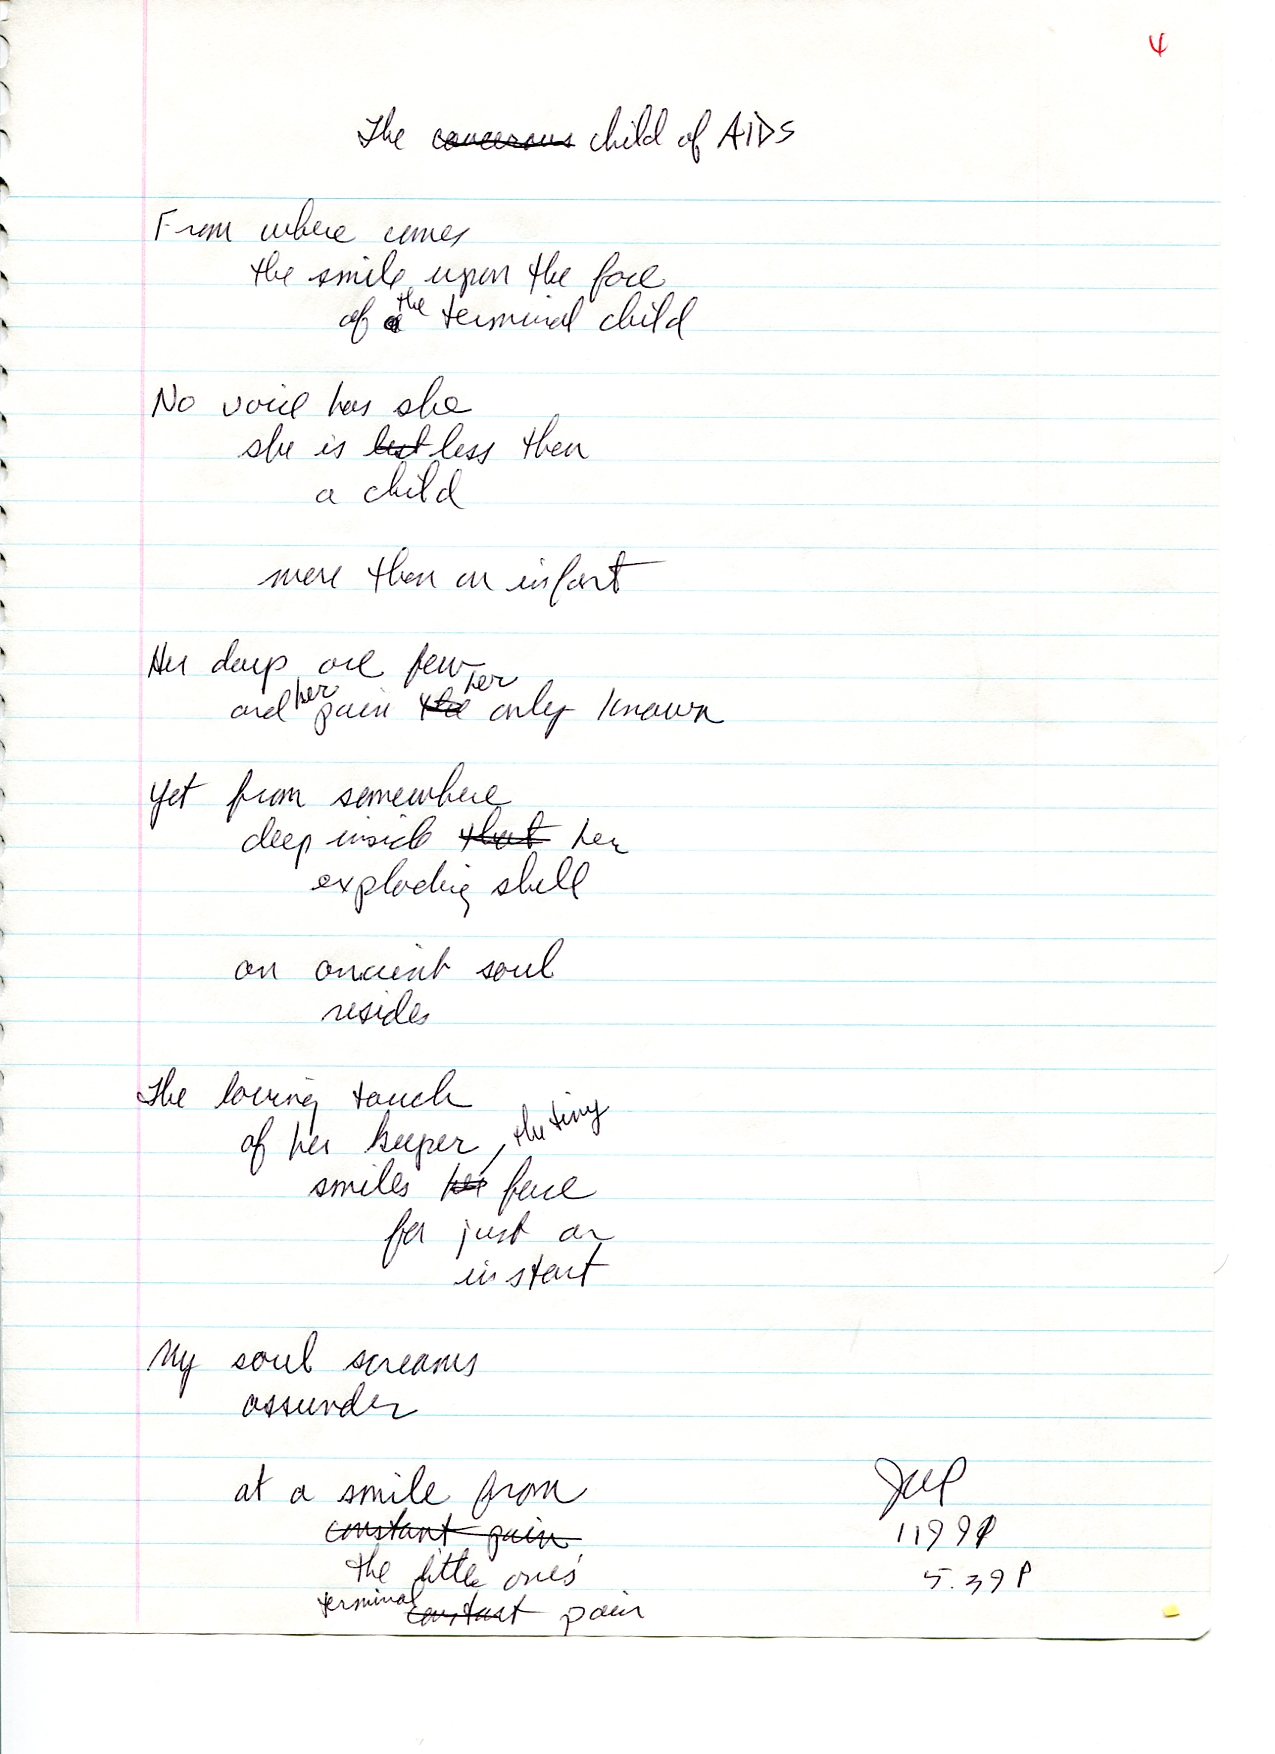 4
The cancerous child of AIDS
From where comes
the smile upon the face
of a the terminal child
No voice has she
she is but less then
a child
more then an infant
Her days are few
and her pain the her only known
Yet from somewhere
deep inside that her
exploding shell
an ancient soul
resides
The loving touch
of her keeper
smiles her the tiny face
for just an
instant
My soul screams
assunder
at a smile from
constant pain
the little ones'
terminal constant pain
5.39 P